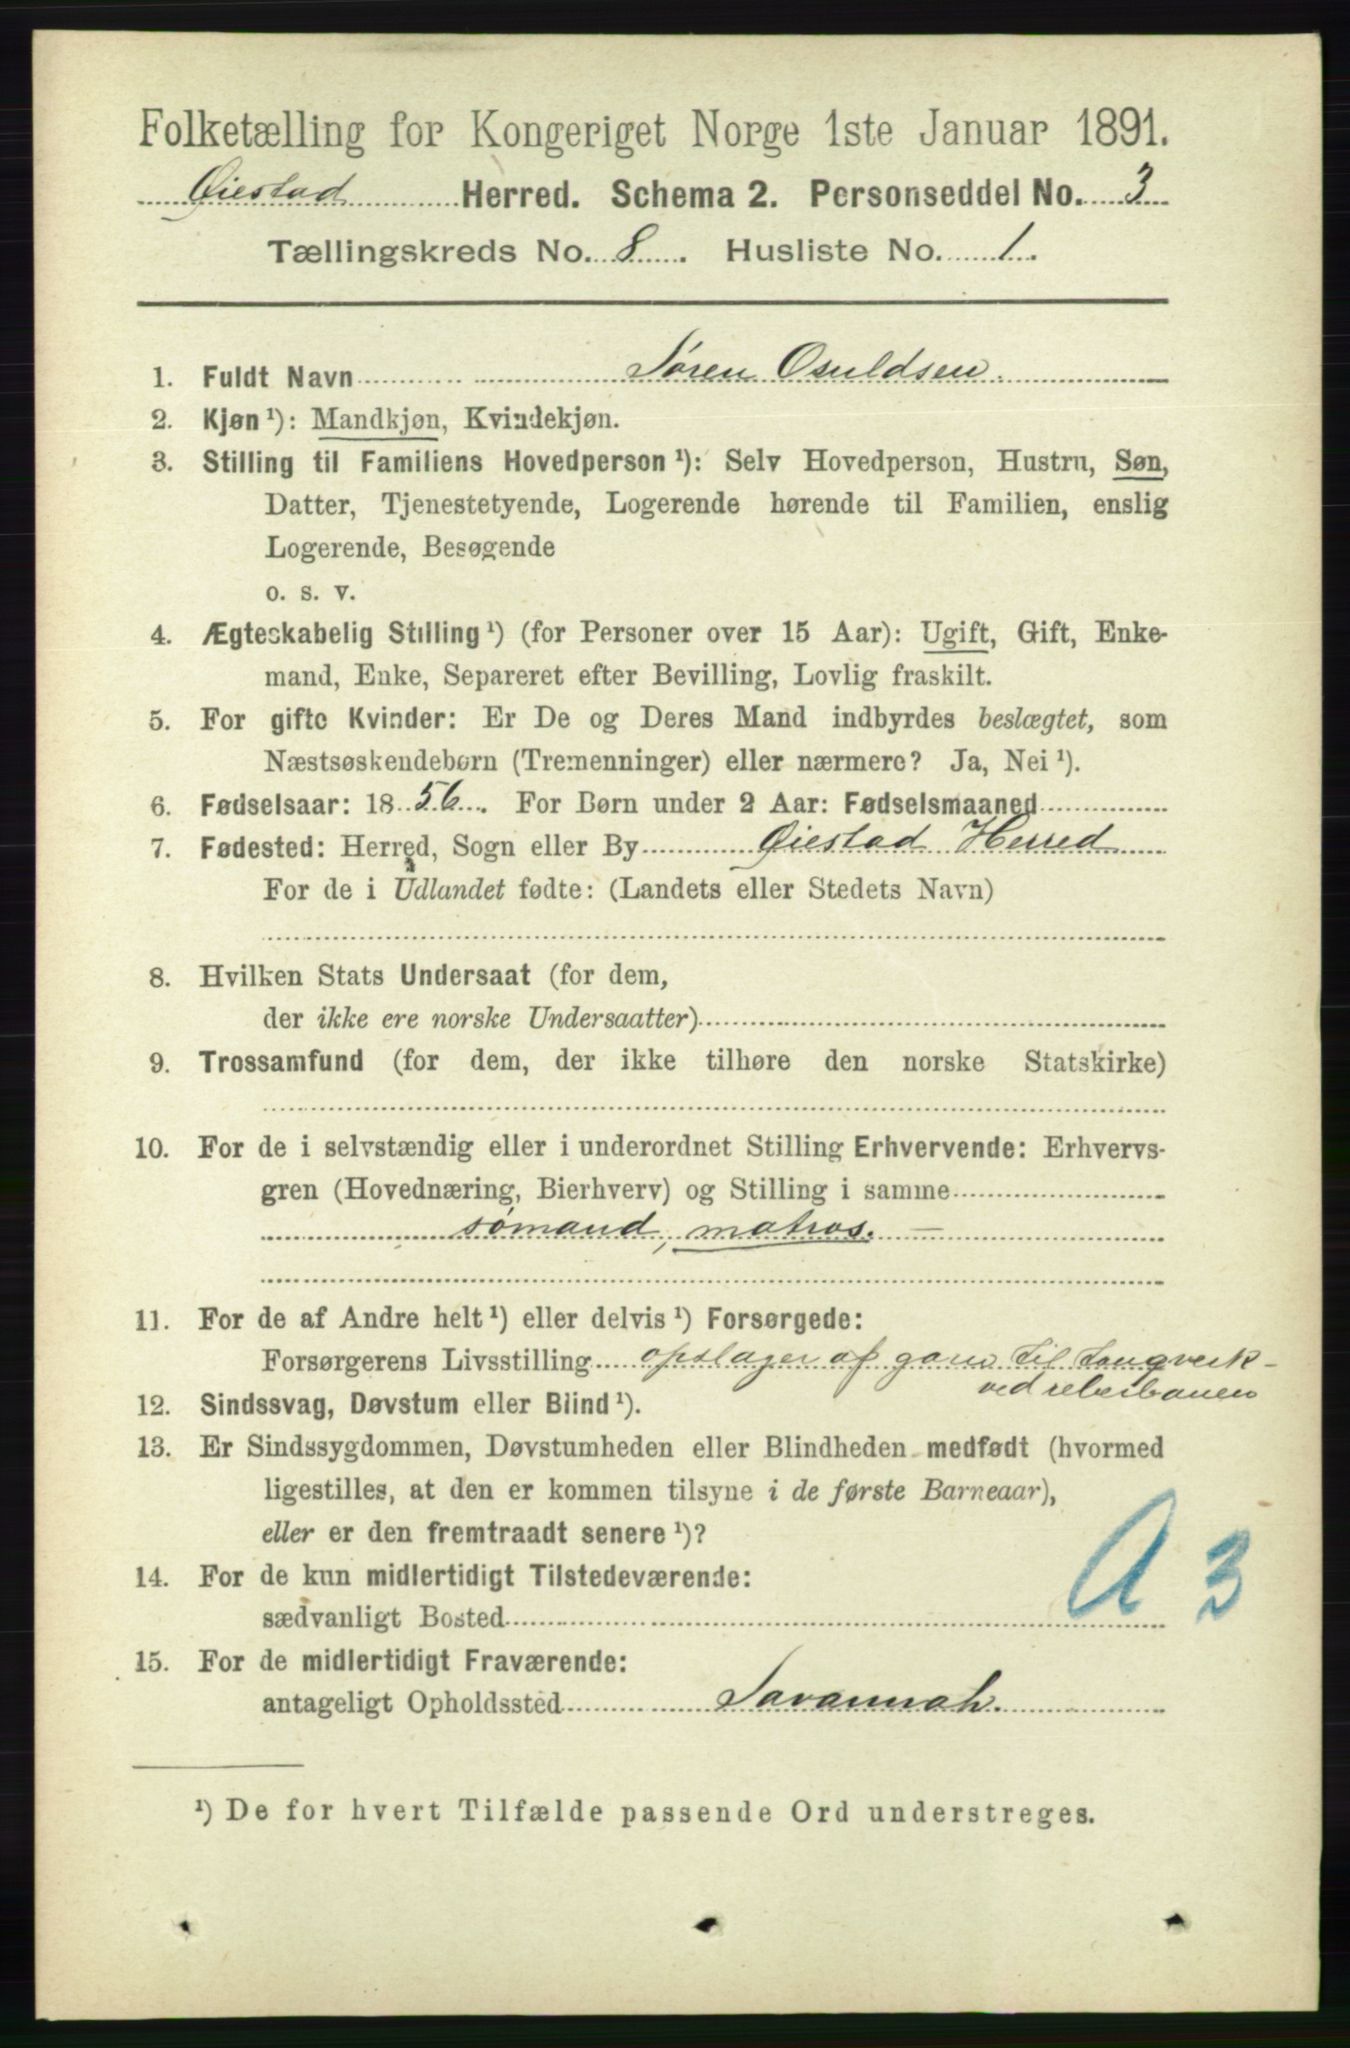 Folketælling for Kongeriget Norge 1ste Januar 1891.
Øiestad Herred. Schema 2. Personseddel No. 3
Tællingskreds No. 8. Husliste No. 1.
1. Fuldt Navn Søren Osuldsen.
2. Kjøn ¹): Mandkjøn, Kvindekjøn.
3. Stilling til Familiens Hovedperson ¹): Selv Hovedperson, Hustru, Søn,
Datter, Tjenestetyende, Logerende hørende til Familien, enslig
Logerende, Besøgende
o. s. v.
4. Ægteskabelig Stilling ¹) (for Personer over 15 Aar): Ugift, Gift, Enke-
mand, Enke, Separeret efter Bevilling, Lovlig fraskilt.
5. For gifte Kvinder: Er De og Deres Mand indbyrdes beslægtet, som
Næstsøskendebørn (Tremenninger) eller nærmere? Ja, Nei ¹).
6. Fødselsaar: 1856. For Børn under 2 Aar: Fødselsmaaned
7. Fødested: Herred, Sogn eller By Øiestad Herred
For de i Udlandet fødte: (Landets eller Stedets Navn)
8. Hvilken Stats Undersaat (for dem,
der ikke ere norske Undersaatter)
9. Trossamfund (for dem, der ikke tilhøre den norske Statskirke)
10. For de i selvstændig eller i underordnet Stilling Erhvervende: Erhvervs-
gren (Hovednæring, Bierhverv) og Stilling i samme
sømand, matros. —
11. For de af Andre helt ¹) eller delvis ¹) Forsørgede:
Forsørgerens Livsstilling opslager af garn til tougverk-
ved reberbanen
12. Sindssvag, Døvstum eller Blind ¹).
13. Er Sindssygdommen, Døvstumheden eller Blindheden medfødt (hvormed
ligestilles, at den er kommen tilsyne i de første Barneaar),
eller er den fremtraadt senere ¹)?
A 3
14. For de kun midlertidigt Tilstedeværende:
sædvanligt Bosted
15. For de midlertidigt Fraværende:
antageligt Opholdssted Savannah.
¹) De for hvert Tilfælde passende Ord understreges.